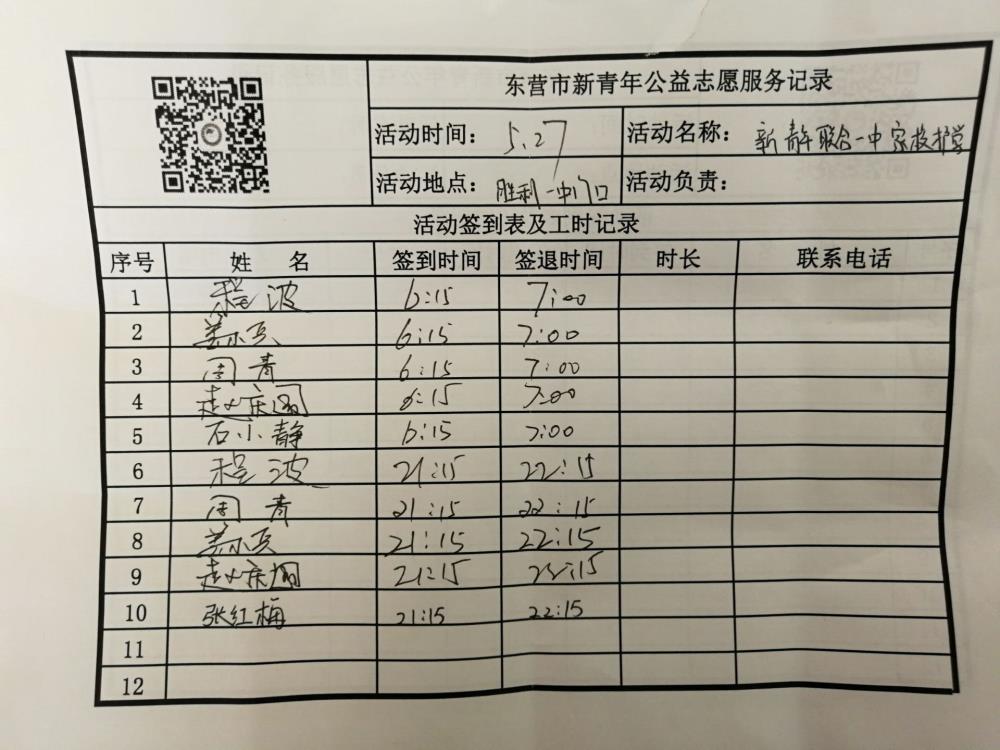 东营市新青年公益志愿服务记录
活动时间： 5.27 活动名称： 新静联合一中家校护学
活动地点： 胜利一中门口 活动负责：
活动签到表及工时记录
序号 姓 名 签到时间 签退时间 时长 联系电话
1 程波 6:15 7:00
2 6:15 7:00
3 周青 6:15 7:00
4 赵庆国 6:15 7:00
5 石小静 6:15 7:00
6 程波 21:15 22:15
7 周青 21:15 22:15
8 21:15 22:15
9 赵庆国 21:15 22:15
10 张红梅 21:15 22:15
11
12